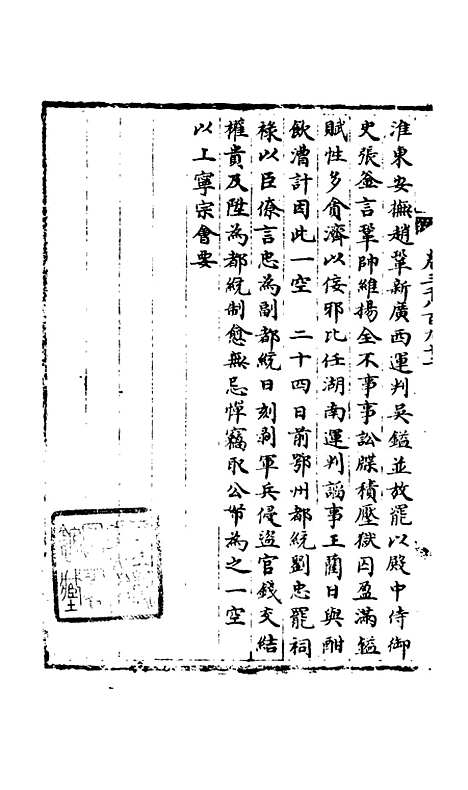 淮東安撫趙鞏新廣西運判吳鎰並放罷以殿中侍御
史張釜言鞏帥維揚全不事事訟牒積壓獄囚盈滿鎰
賦性多貪濟以佞邪比任湖南運判謟事王藺日與酣
飲漕計因此一空　二十四日前鄂州都統劉忠罷祠
祿以臣僚言忠為副都統日刻剥軍兵侵盜官錢交結
權貴及陞為都統制愈無忌憚竊取公帑為之一空
以上寧宗會要